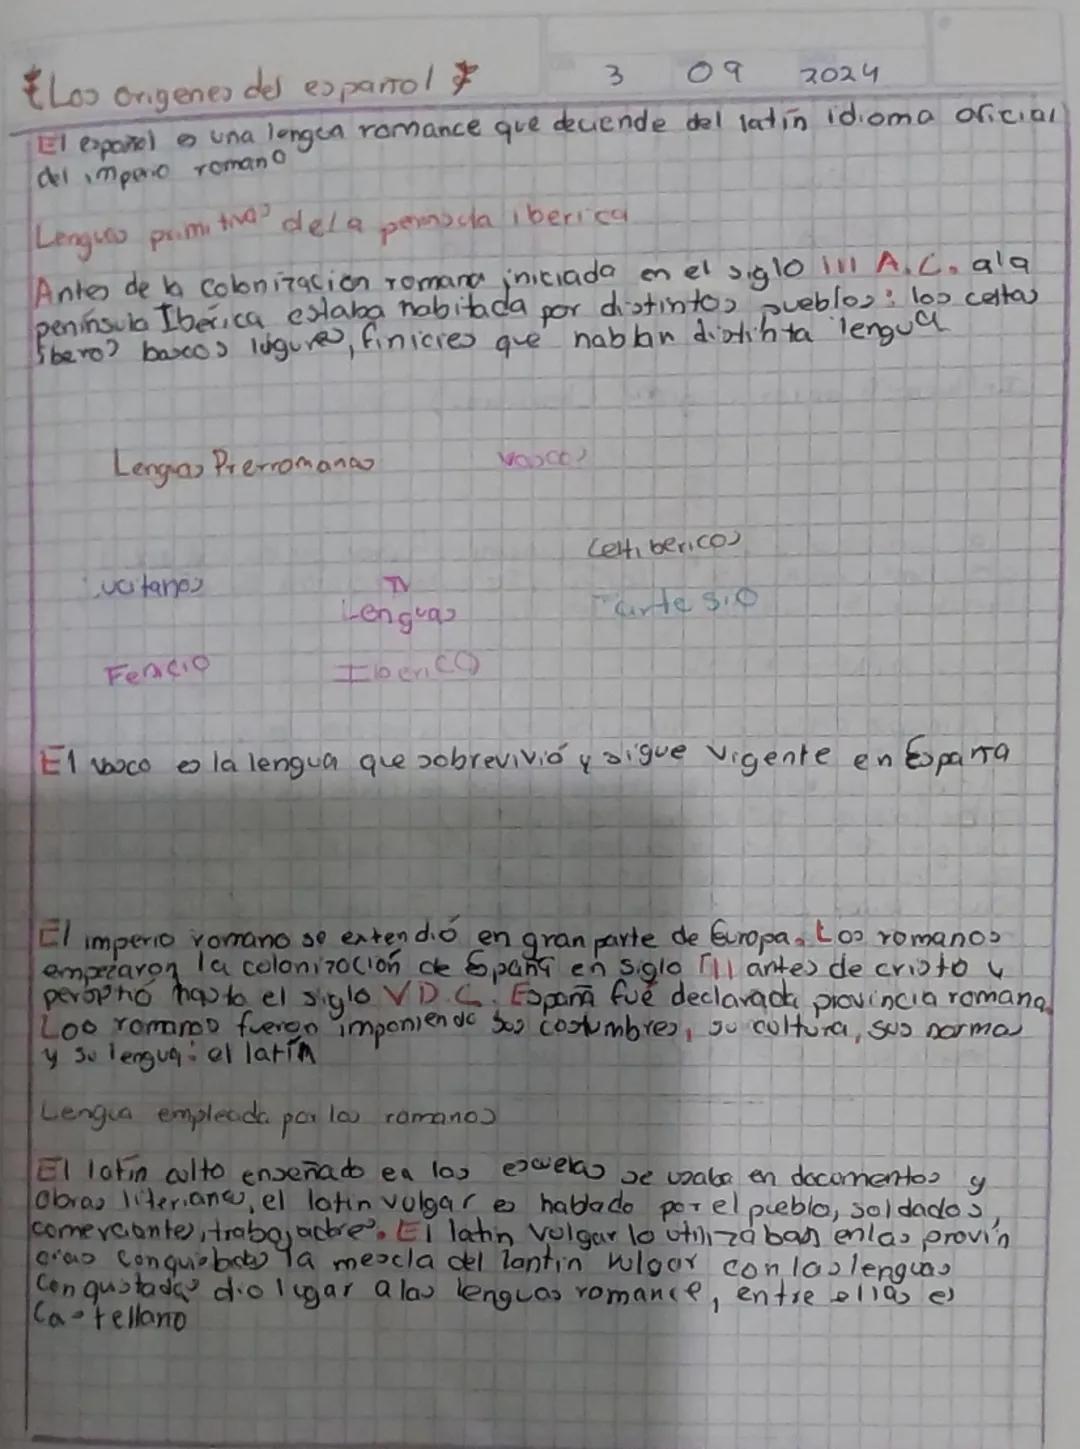 Los origenes del español
3 09 2024
El español es una lengua romance que deciende del latín idioma oficial
del imperio romano
Lenguas primitivas de la peninsula iberica
Antes de la colonización romana iniciada en el siglo III A.C. ala
península Ibérica estaba habitada por distintos pueblos: los celtas
íberos bascos lugures, finicies que hablan distinta lengua
Lenguas Prerromanas
Vascos
Celtibericos
Lucitanos
Lenguas
Tartesio
Fenicio
Iberico
El vasco es la lengua que sobrevivió y sigue vigente en España
El imperio romano se extendió en gran parte de Europa. Los romanos
empezaron la colonización de España en siglo III antes de cristo y
hasta el siglo V D.C. España fué declarada provincia romana.
Los romanos fueron imponiendo sus costumbres, su cultura, sus normas
y su lengua: el latín
Lengua empleada por los romanos
El latín culto enseñado en las escuelas se usaba en documentos y
obras literianas, el latin vulgar es hablado por el pueblo, soldados,
comerciantes, trabajadores. El latin vulgar lo utilizaban en las provin
la mezcla del lantin vulgar con las lenguas
conquistadas dio lugar a las lenguas romance, entre ellas es
Castellano